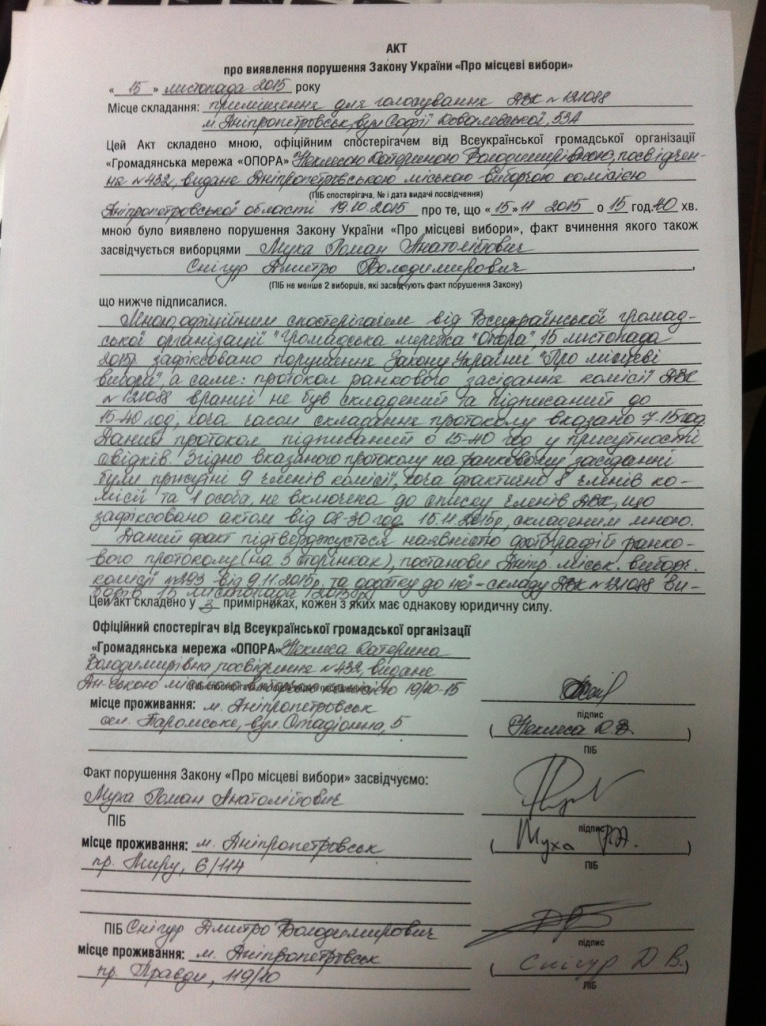 АКТ
про виявлення порушення Закону України «Про місцеві вибори»
« 15 » листопада 2015 року
Місце складання: приміщення для голосування ДВК №121088
м. Дніпропетровськ, вул. Софії Ковалевської, 53А
Цей Акт складено мною, офіційним спостерігачем від Всеукраїнської громадської організації
«Громадянська мережа «ОПОРА» Катериною Володимирівною, посвідчен-
ня №432, видане Дніпропетровською міською виборчою комісією
(ПІБ спостерігача, № і дата видачі посвідчення)
Дніпропетровської області 19.10.2015 про те, що «15» 11 2015 о 15 год. 40 хв.
мною було виявлено порушення Закону України «Про місцеві вибори», факт вчинення якого також
засвідчується виборцями Муха Роман Анатолійович
Снігур Дмитро Володимирович ,
(ПІБ не менше 2 виборців, які засвідчують факт порушення Закону)
що нижче підписалися.
Мною, офіційним спостерігачем від Всеукраїнської громад-
ської організації "Громадська мережа "Опора" 15 листопада
2015р. зафіксовано порушення Закону України "Про місцеві
вибори", а саме: протокол ранкового засідання комісії ДВК
№121088 вранці не був складений та підписаний до
15-40 год, хоча часом складання протоколу вказано 7-15 год.
Даний протокол підписаний о 15-40 год у присутності
свідків. Згідно вказаного протоколу на ранковому засіданні
були присутні 9 членів комісії, хоча фактично 8 членів ко-
місії та 1 особа, не включена до списку членів ДВК, що
зафіксовано актом від 08-30 год. 15.11.2015р, складеним мною.
Даний факт підтверджується наявністю фотографій ранко-
вого протоколу (на 3 сторінках), постанови Дніпр. міськ. виборч.
комісії від 9.11.2015р, та додатку до неї - складу ДВК №121088 ви-
борів 15 листопада (2015р)
Цей акт складено у 3 примірниках, кожен з яких має однакову юридичну силу.
Офіційний спостерігач від Всеукраїнської громадської організації
«Громадянська мережа «ОПОРА» Катерина
Володимирівна посвідчення №432, видане
Дн-ською міською виборчою комісією 19/10-15
місце проживання: м. Дніпропетровськ
вул. Стадіонна, 5
підпис
ПІБ
Факт порушення Закону «Про місцеві вибори» засвідчуємо:
Муха Роман Анатолійович
ПІБ
підпис
місце проживання: м. Дніпропетровськ
( Муха Р.А. )
пр. Миру, 6/114
ПІБ
ПІБ Снігур Дмитро Володимирович
підпис
місце проживання: м. Дніпропетровськ
( Снігур Д В. )
пр. Правди, 119/10
ПІБ